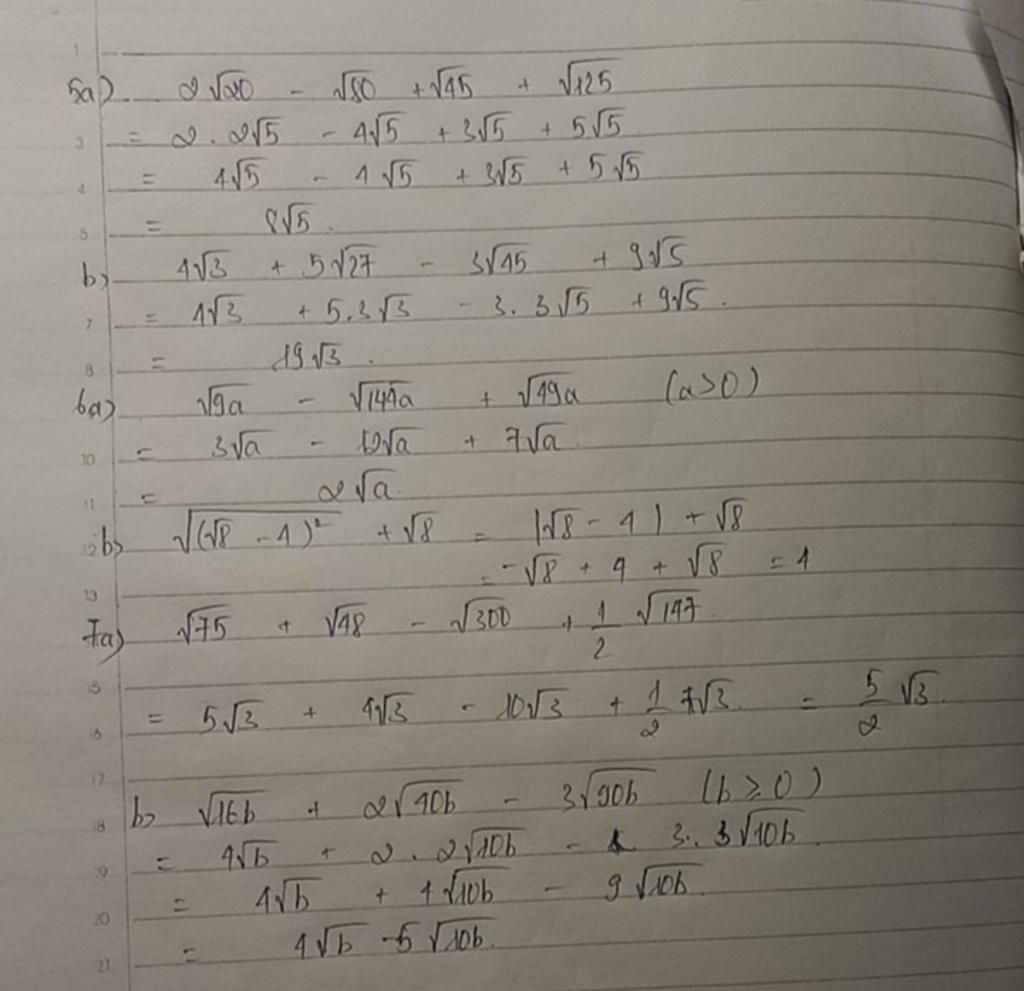 5a) 2√20 - √80 + √45 + √125
= 2.2√5 - 4√5 + 3√5 + 5√5
= 4√5 - 4√5 + 3√5 + 5√5
= 8√5.
b) 4√3 + 5√27 - 3√45 + 9√5
= 4√3 + 5.3√3 - 3.3√5 + 9√5.
= 19√3.
6a) √9a - √144a + √49a (a>0)
= 3√a - 12√a + 7√a
= 2√a.
b) √(√8 - 4)² + √8 = |√8 - 4| + √8
= -√8 + 4 + √8 = 4
7a) √75 + √48 - √300 + 1/2 √147.
= 5√3 + 4√3 - 10√3 + 1/2 7√3. = 5/2 √3.
b) √16b + 2√40b - 3√90b (b≥0)
= 4√b + 2.2√10b - 3.3√10b.
= 4√b + 4√10b - 9√10b.
= 4√b - 5√10b.